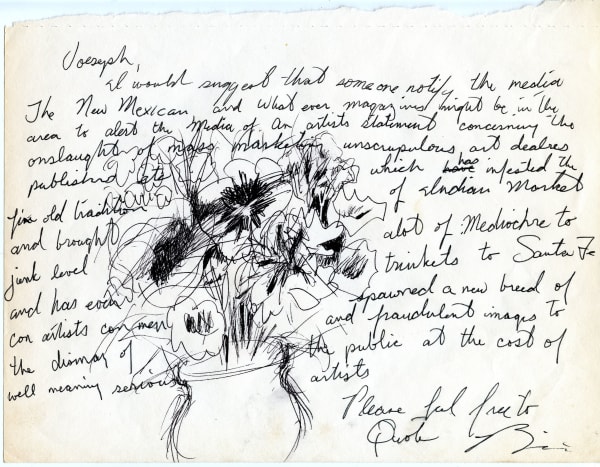 Joeseph,
I would suggest that someone notify the media
The New Mexican and what ever magazines might be in the
area to alert the Media of an artists statement concerning the
onslaught of mass marketing unscrupulous art dealers
published etc which have has infested the
fine old tradition of Indian Market
and brought alot of Mediochre to
junk level trinkets to Santa Fe
and has even spawned a new breed of
con artists con men and fraudulent images to
the dismay of the public at the cost of
well meaning serious artists
Please feel free to
Quote